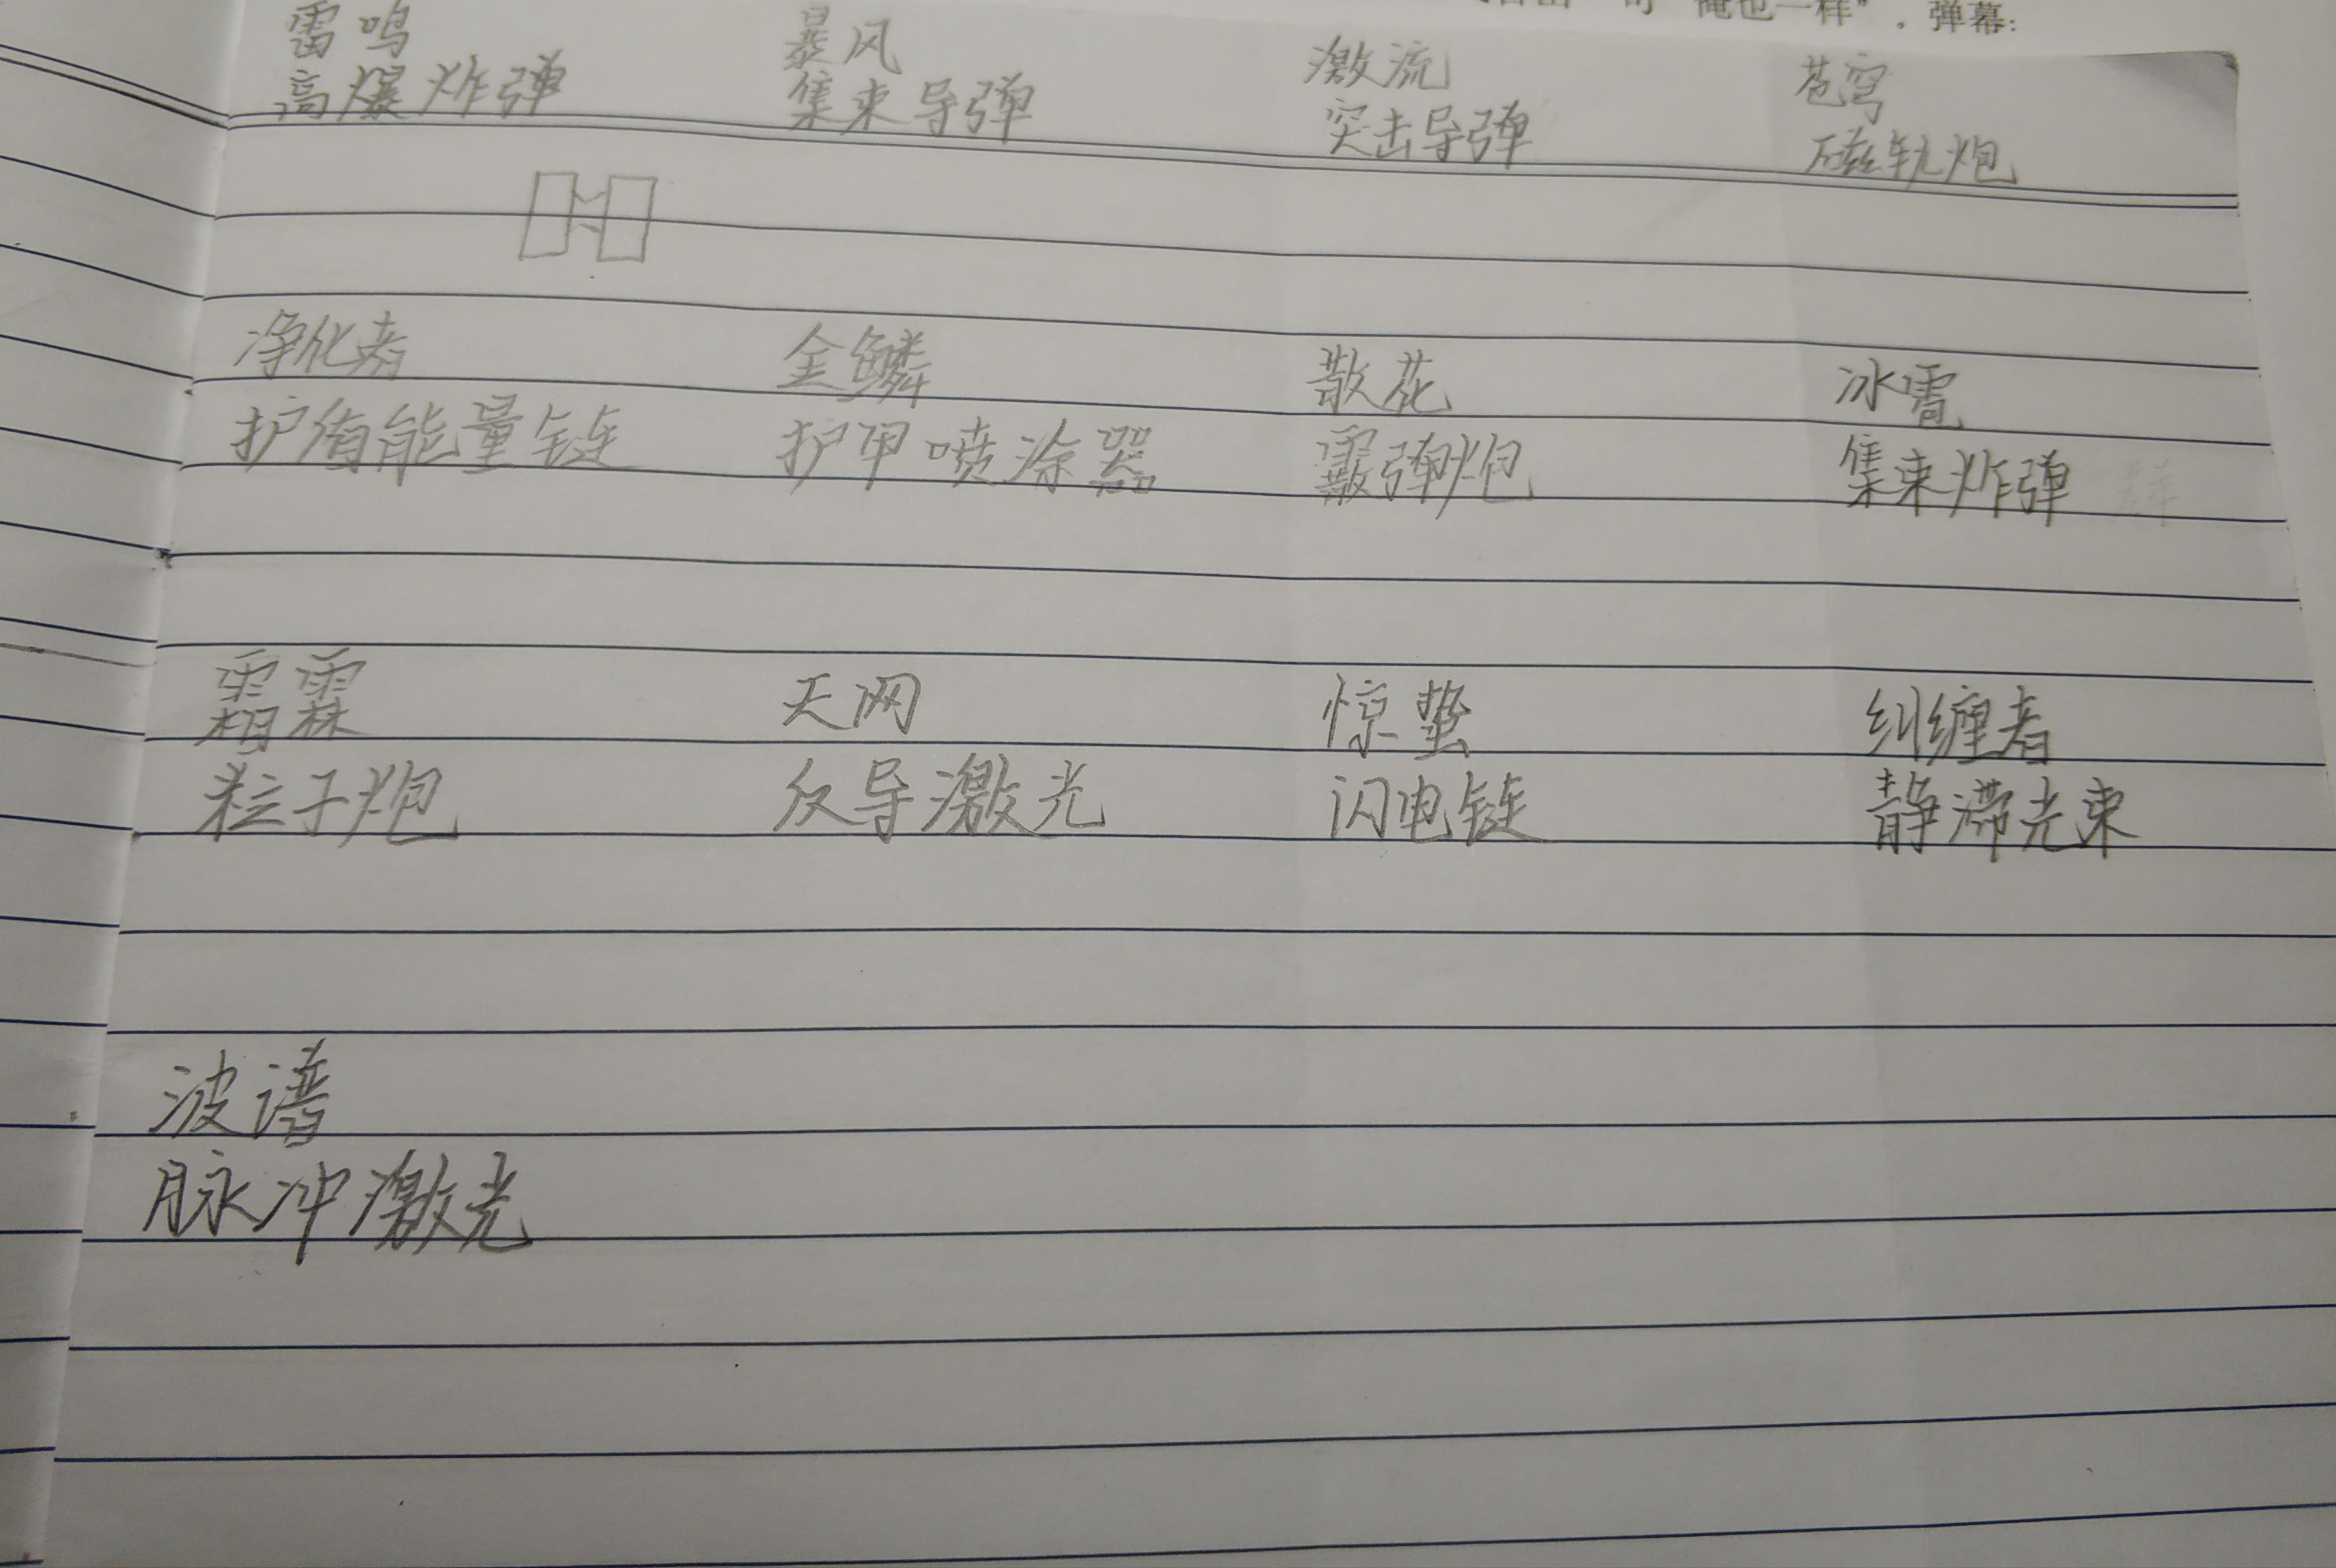 俺也一样”，弹幕：
雷鸣 暴风 激流 苍穹
高爆炸弹 集束导弹 突击导弹 磁轨炮
净化者 金鳞 散花 冰雹
护盾能量链 护甲喷涂器 霰弹炮 集束炸弹
霜霖 天网 惊蛰 纠缠者
粒子炮 反导激光 闪电链 静滞光束
波谱
脉冲激光